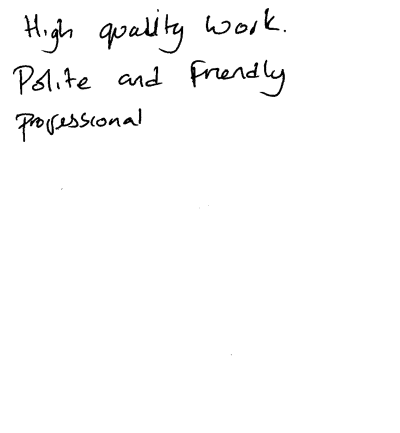 High quality work.
Polite and Friendly
professional